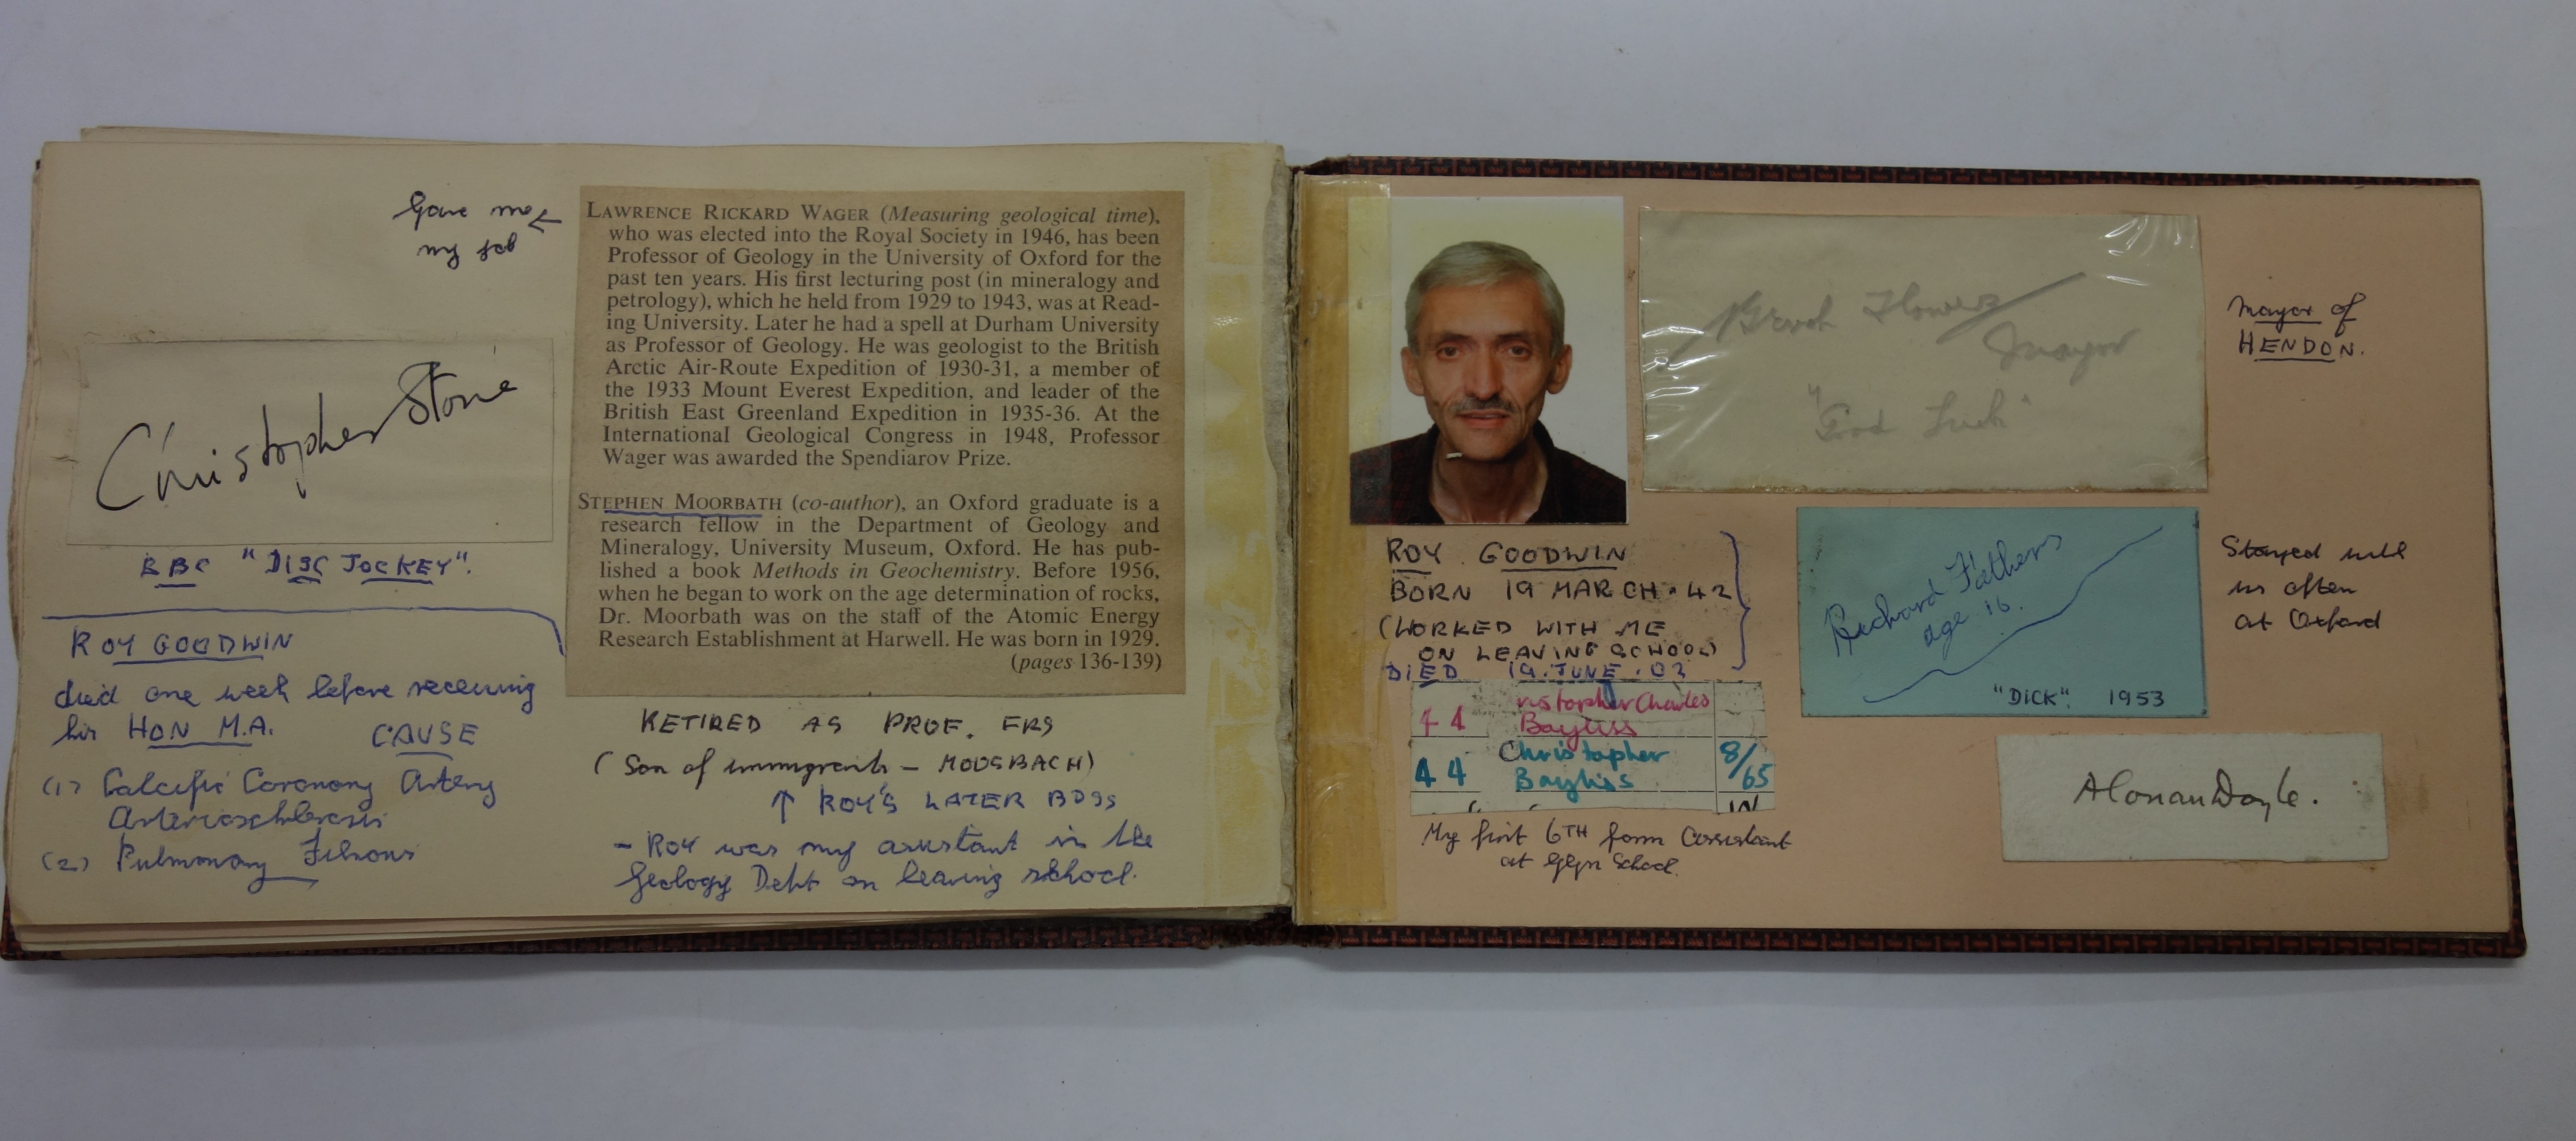 Gave me
my job
Christopher Stone
BBC "DISC JOCKEY".
ROY GOODWIN
died one week before receiving
his HON M.A. CAUSE
(1) Calcific Coronary Artery
(2) Pulmonary
LAWRENCE RICKARD WAGER (Measuring geological time),
who was elected into the Royal Society in 1946, has been
Professor of Geology in the University of Oxford for the
past ten years. His first lecturing post (in mineralogy and
petrology), which he held from 1929 to 1943, was at Read-
ing University. Later he had a spell at Durham University
as Professor of Geology. He was geologist to the British
Arctic Air-Route Expedition of 1930-31, a member of
the 1933 Mount Everest Expedition, and leader of the
British East Greenland Expedition in 1935-36. At the
International Geological Congress in 1948, Professor
Wager was awarded the Spendiarov Prize.
STEPHEN MOORBATH (co-author), an Oxford graduate is a
research fellow in the Department of Geology and
Mineralogy, University Museum, Oxford. He has pub-
lished a book Methods in Geochemistry. Before 1956,
when he began to work on the age determination of rocks,
Dr. Moorbath was on the staff of the Atomic Energy
Research Establishment at Harwell. He was born in 1929.
(pages 136-139)
RETIRED AS PROF. FRS
(Son of immigrants – MOOSBACH)
↑ ROY'S LATER BOSS
– ROY was my assistant in the
Geology Dept on leaving school.
ROY GOODWIN
BORN 19 MARCH.42
(WORKED WITH ME
ON LEAVING SCHOOL)
DIED 19.JUNE.02
44 ristopher Charles
Bayliss
44 Christopher 8/65
Bayliss
My first 6TH form Assistant
at Glyn School.
Flower
Mayor
"Good Luck"
Mayor of
HENDON.
Richard Fathers
age 16.
"DICK". 1953
Stayed with
us often
at Oxford
A Conan Doyle.